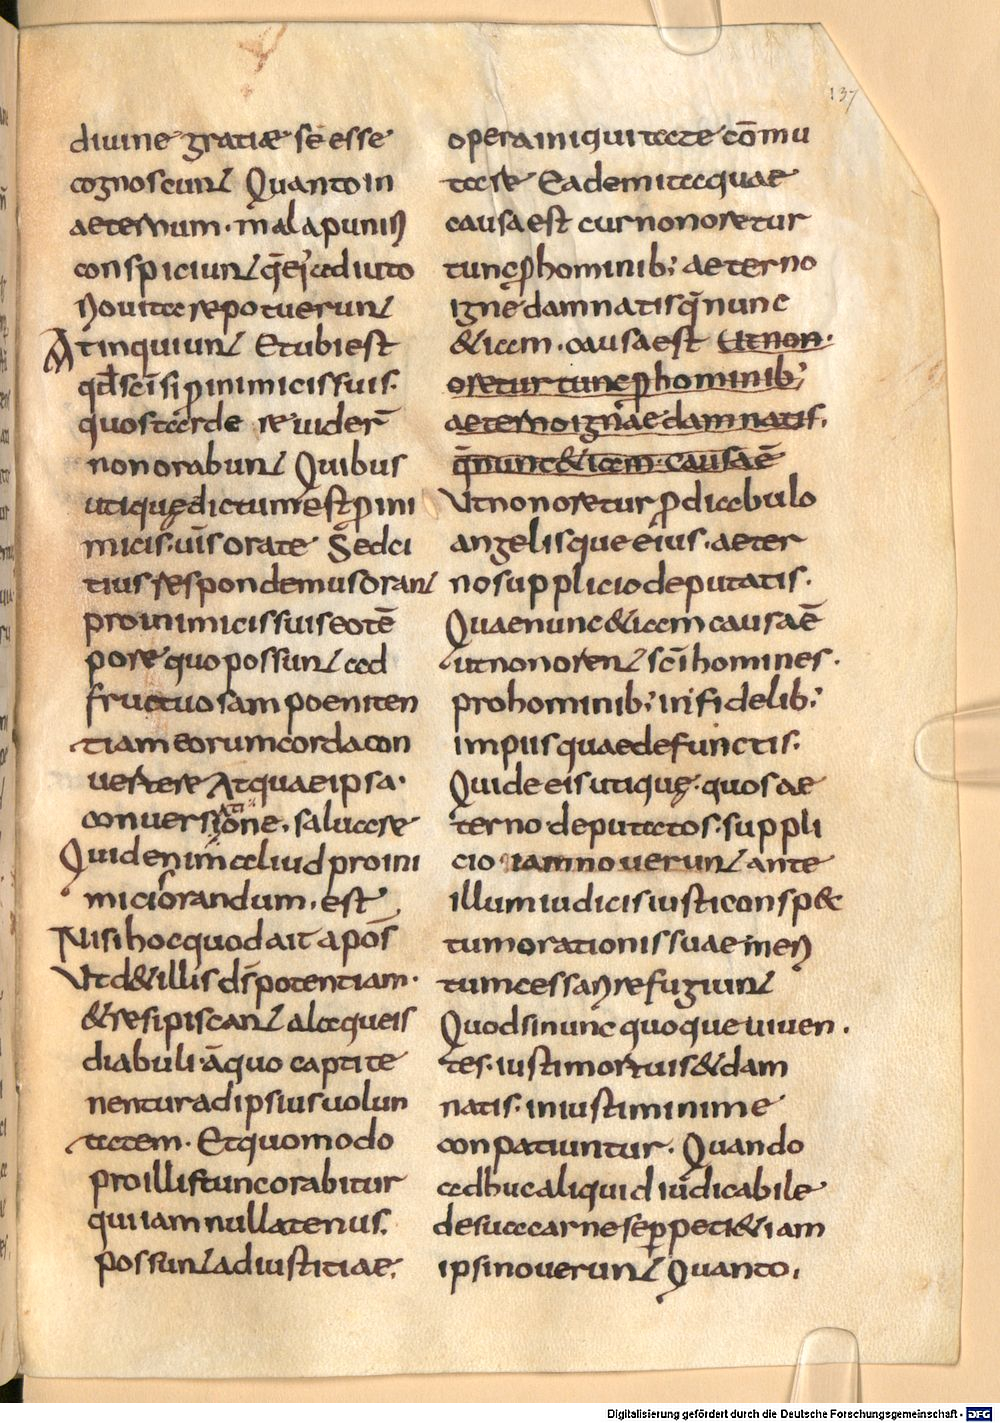 137
diuine gratiæ se esse
cognoscunt Quanto in
aeternum · mala puniri
conspiciunt q̄ ei; adiuto
rio uitare potuerunt
At inquiunt Et ubi est
qđ sc̄i si ꝓ inimicis suis·
quos tarde re uiderē
non orabunt Quibus
utique dictum est ꝓ ini
micis uīs orate Sed ci
tius respondemus orant
pro inimicis suis eo tē
pore quo possunt ad
fructuosam poeniten
tiam eorum corda con
uertere Atquae ipsa·
conuersatione · saluare
Quid enim aliud pro ini
micis orandum · est
Nisi hoc quod ait apōs
Vt d& illis ds̄ potentiam·
&resipiscant alaqueis
diabuli · āquo capti te
nentur ad ipsius uolun
tatem · Et quomodo
pro illis tunc orabitur
qui iam nullatenus·
possunt ad iustitiae;
opera iniquitate cōmu
tare Eadem itaquae
causa est cur non oretur
tunc ꝓ hominib; aeterno
igne damnatis q̄ nunc
&iam · causa est Ut non ·
oretur tunc ꝓ hominib;
aeterno ignae damnatis·
q̄ nunc &iam · causa ē
Vt non oretur ꝓ diabulo
angelisque eius · aeter
no supplicio deputatis·
Quae nunc &iam causa ē
ut non orent sc̄i homines·
pro hominib; infidelib;
impiisquae defunctis·
Qui de eis utique · quos ae
terno · deputatos · suppli
cio iam nouerunt ante
illum iudicis iusti consp&
tum orationis suae meri
tum cessari refugiunt
Quod si nunc quoque uiuen ·
tes · iusti mortuis &dam
natis · iniusti minime
conpatiuntur · Quando
adhuc aliquid iudicabile
de sua carne se perpeti &iam
ipsi nouerunt Quanto ·
Digitalisierung gefördert durch die Deutsche Forschungsgemeinschaft - DFG